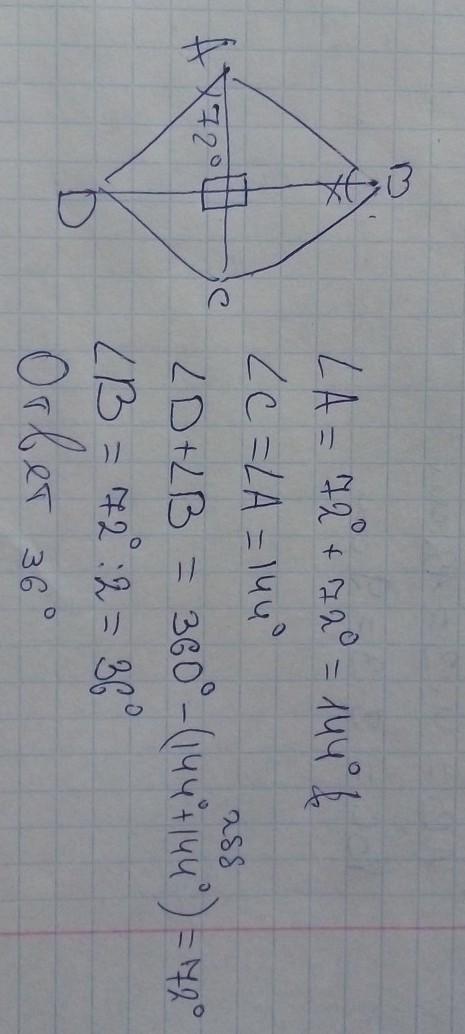 A
B
72°
x
D
C
∠A = 72° + 72° = 144°
∠C = ∠A = 144°
288
∠D + ∠B = 360° - (144° + 144°) = 72°
∠B = 72° : 2 = 36°
Ответ 36°